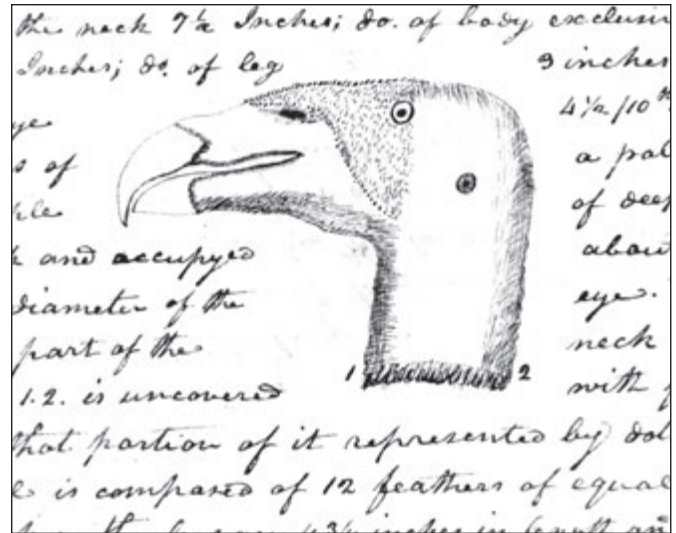 the neck 7¼ Inches; do. of body exclusiv
Inches; do. of leg 3 inches
ye 4½/10
s of a pal
ple of deep
k and occupyed about
diameter of the eye.
part of the neck
1 2
1.2. is uncovered with
that portion of it represented by dot
e is composed of 12 feathers of equal
inches in length an